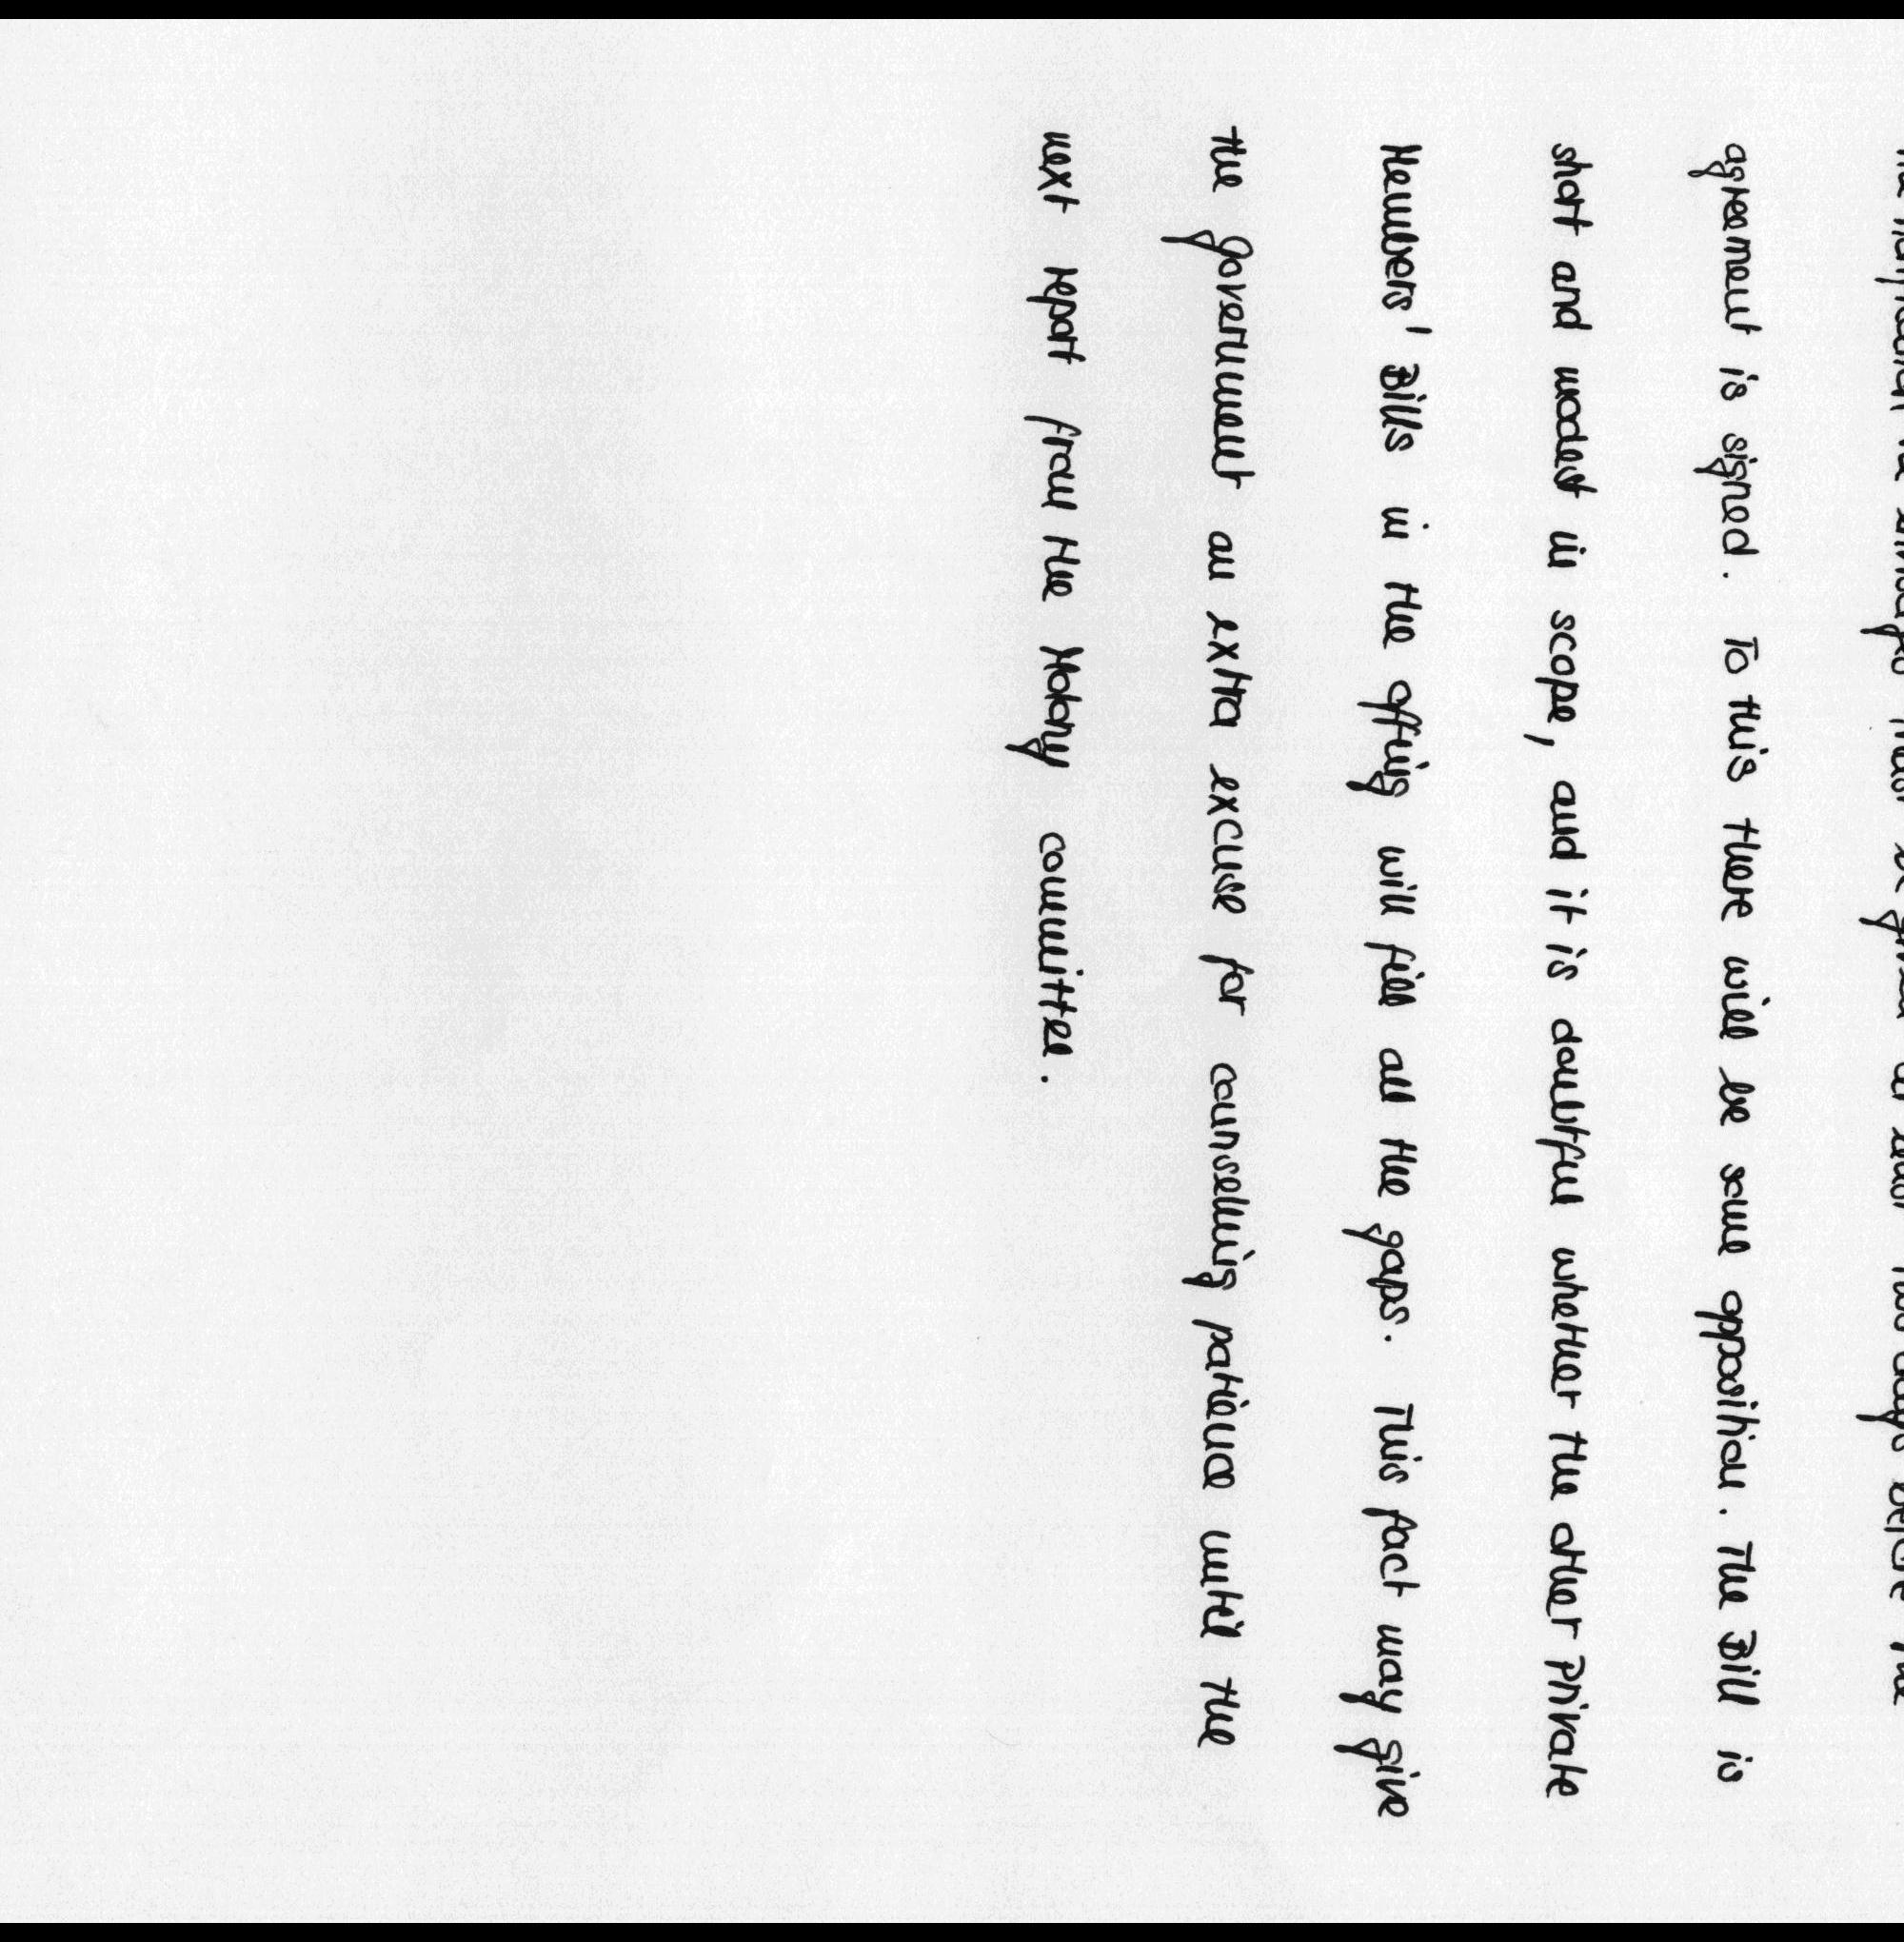 must be given at least two days before the
agreement is signed. To this there will be some opposition. The Bill is
short and modest in scope, and it is doubtful whether the other Private
Members' Bills in the offing will fill all the gaps. This fact may give
the government an extra excuse for counselling patience until the
next report from the Molony committee.